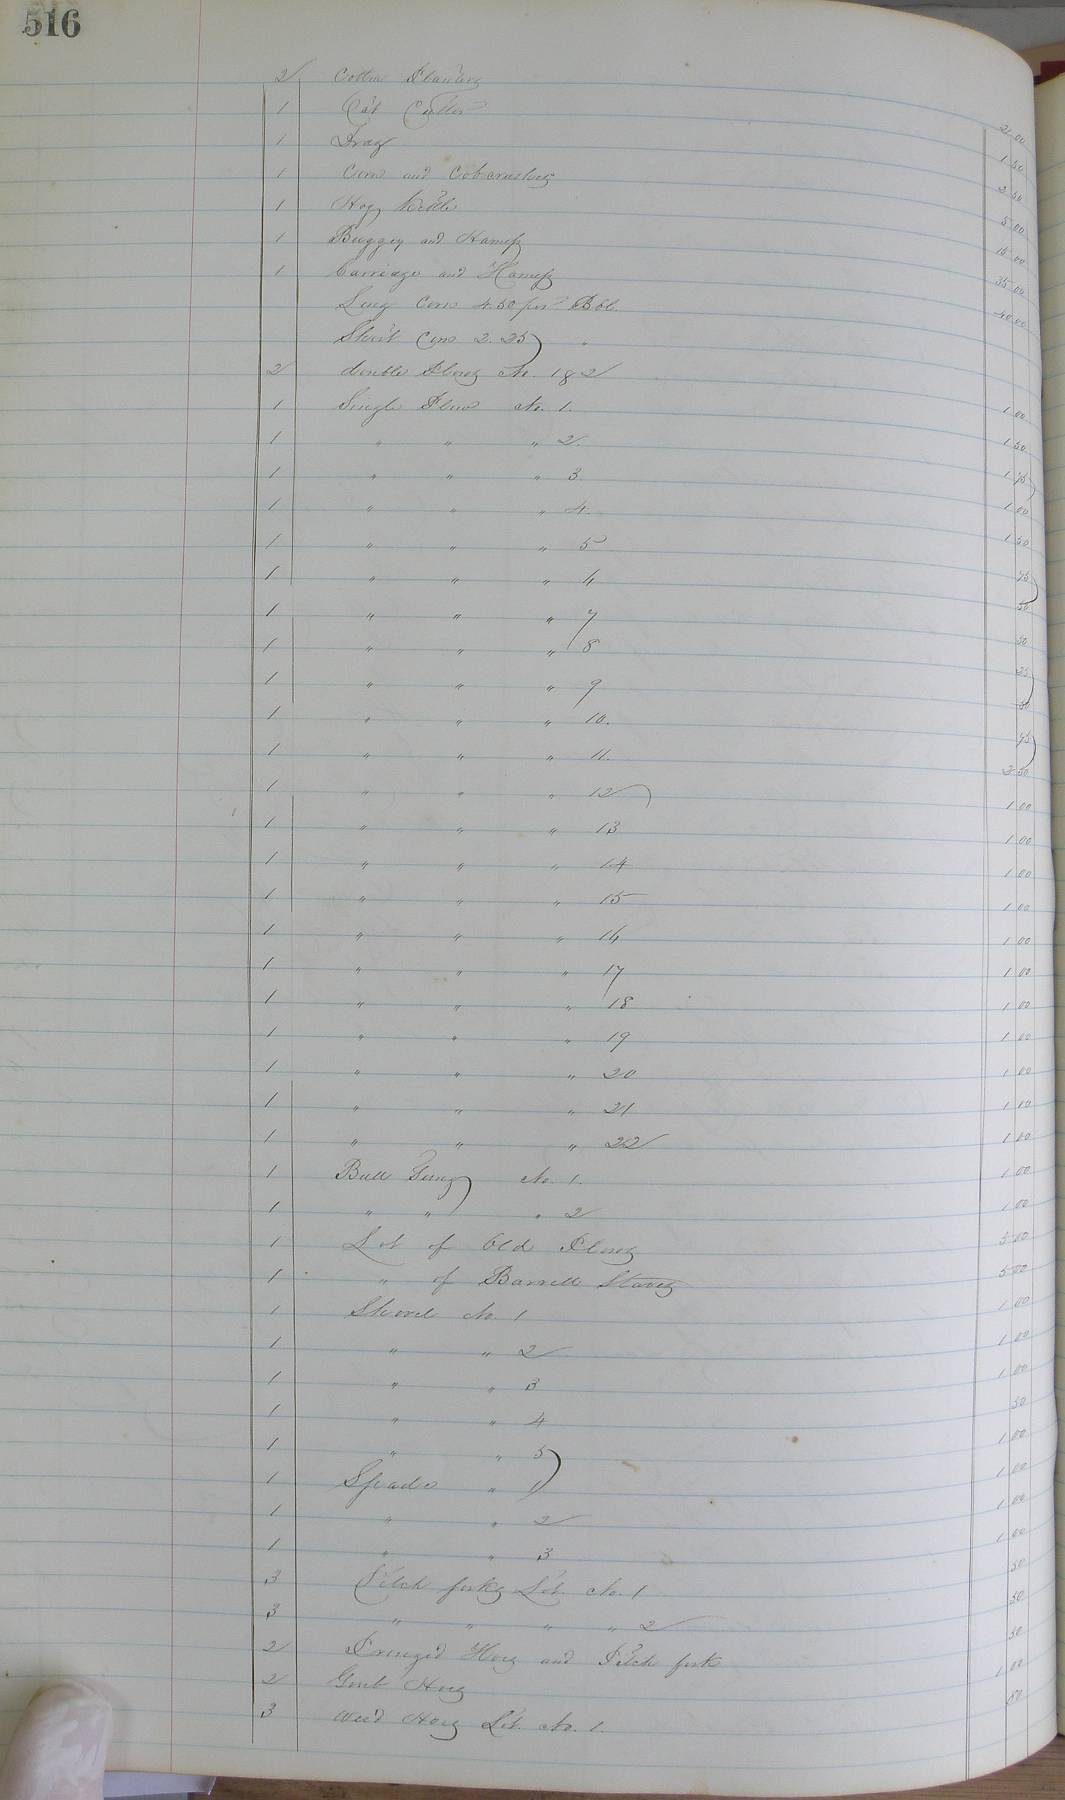 516
2 Cotton Planters 2 00
1 Cut Cutter 1 50
1 Drag 2 50
1 Corn and Cob crushers 5 00
1 Hog Kettle 15 00
1 Buggy and Harness 35 00
1 Carriage and Harness 40 00
Long Corn 4.50 per Bbl.
Short Corn 2.25 "
2 double Plows No. 1 & 2 1 00
1 Single Plow No. 1. 1 50
1 " " " 2. 1 75
1 " " " 3 1 00
1 " " " 4. 1 50
1 " " " 5 75
1 " " " 6 50
1 " " " 7 50
1 " " " 8 25
1 " " " 9 50
1 " " " 10. 75
1 " " " 11. 2 50
1 " " " 12 1 00
1 " " " 13 1 00
1 " " " 14 1 00
1 " " " 15 1 00
1 " " " 16 1 00
1 " " " 17 1 00
1 " " " 18 1 00
1 " " " 19 1 00
1 " " " 20 1 00
1 " " " 21 1 00
1 " " " 22 1 00
1 Bull Tung No. 1. 1 00
1 " " " 2 1 00
1 Lot of Old Plows 5 00
1 " of Barrell Staves 5 00
1 Shovel No. 1 1 00
1 " " 2 1 00
1 " " 3 1 00
1 " " 4 50
1 " " 5 1 00
1 Spade " 1 1 00
1 " " 2 1 00
1 " " 3 1 00
3 Pitch forks Lot No. 1 50
3 " " " " 2 50
2 Pronged Hoes and Pitch fork 50
2 Grub Hoes 1 00
3 Weed Hoes Lot No. 1. 50